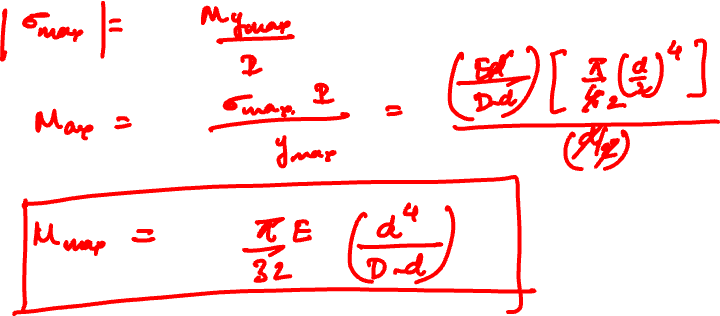 |σmax| = M ymax / I
Mmax = σmax. I / ymax = (Ed / D-d) [ π/4 2 (d/2)^4 ] / (d/2)
Mmax = π/32 E (d^4 / D-d)